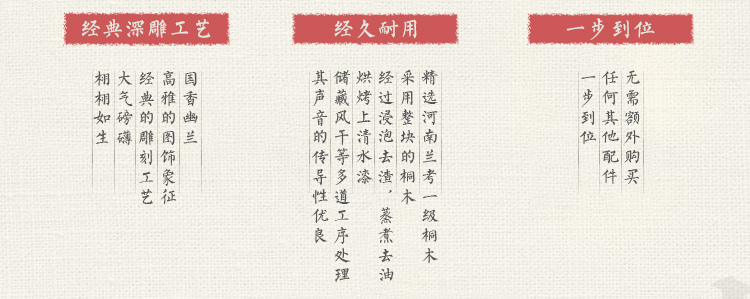 经典深雕工艺
国香幽兰
高雅的图饰象征
经典的雕刻工艺
大气磅礴
栩栩如生
经久耐用
精选河南兰考一级桐木
采用整块的桐木
经过浸泡去渣，蒸煮去油
烘烤上清水漆
储藏风干等多道工序处理
其声音的传导性优良
一步到位
无需额外购买
任何其他配件
一步到位